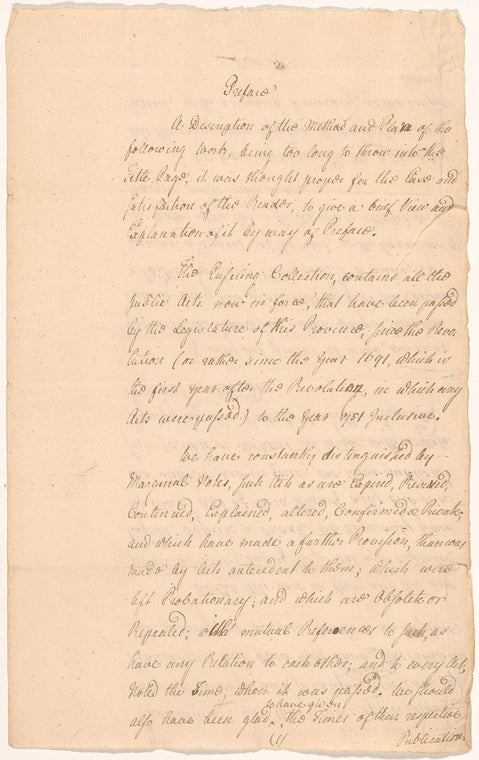 Preface
A Description of the Method and Plan of the
following Work, being too long to throw into the
Title Page, it was thought proper for the Ease and
Satisfaction of the Reader, to give a brief View and
Explanation of it by way of Preface.
The Ensuing Collection, contains all the
Public Acts now in force, that have been passed
by the Legislature of this Province, since the Revo
lution (or rather since the Year 1691, which is
the first year after the Revolution, in which any
Acts were passed) to the Year 1751 Inclusive.
We have constantly distinguished by
Marginal Notes, such Acts as are Expired, Revived,
Continued, Explained, altered, Confirmed or Private,
and which have made a further Provision, than was
made by Acts antecedent to them; which were
but Probationary; and which are Obsolete or
Repealed; with mutual References to such as
have any Relation to each other; and to every Act,
Noted the Time, when it was passed. We should
to have given
also have been glad ‸ the Times of their respective
(1) Publication